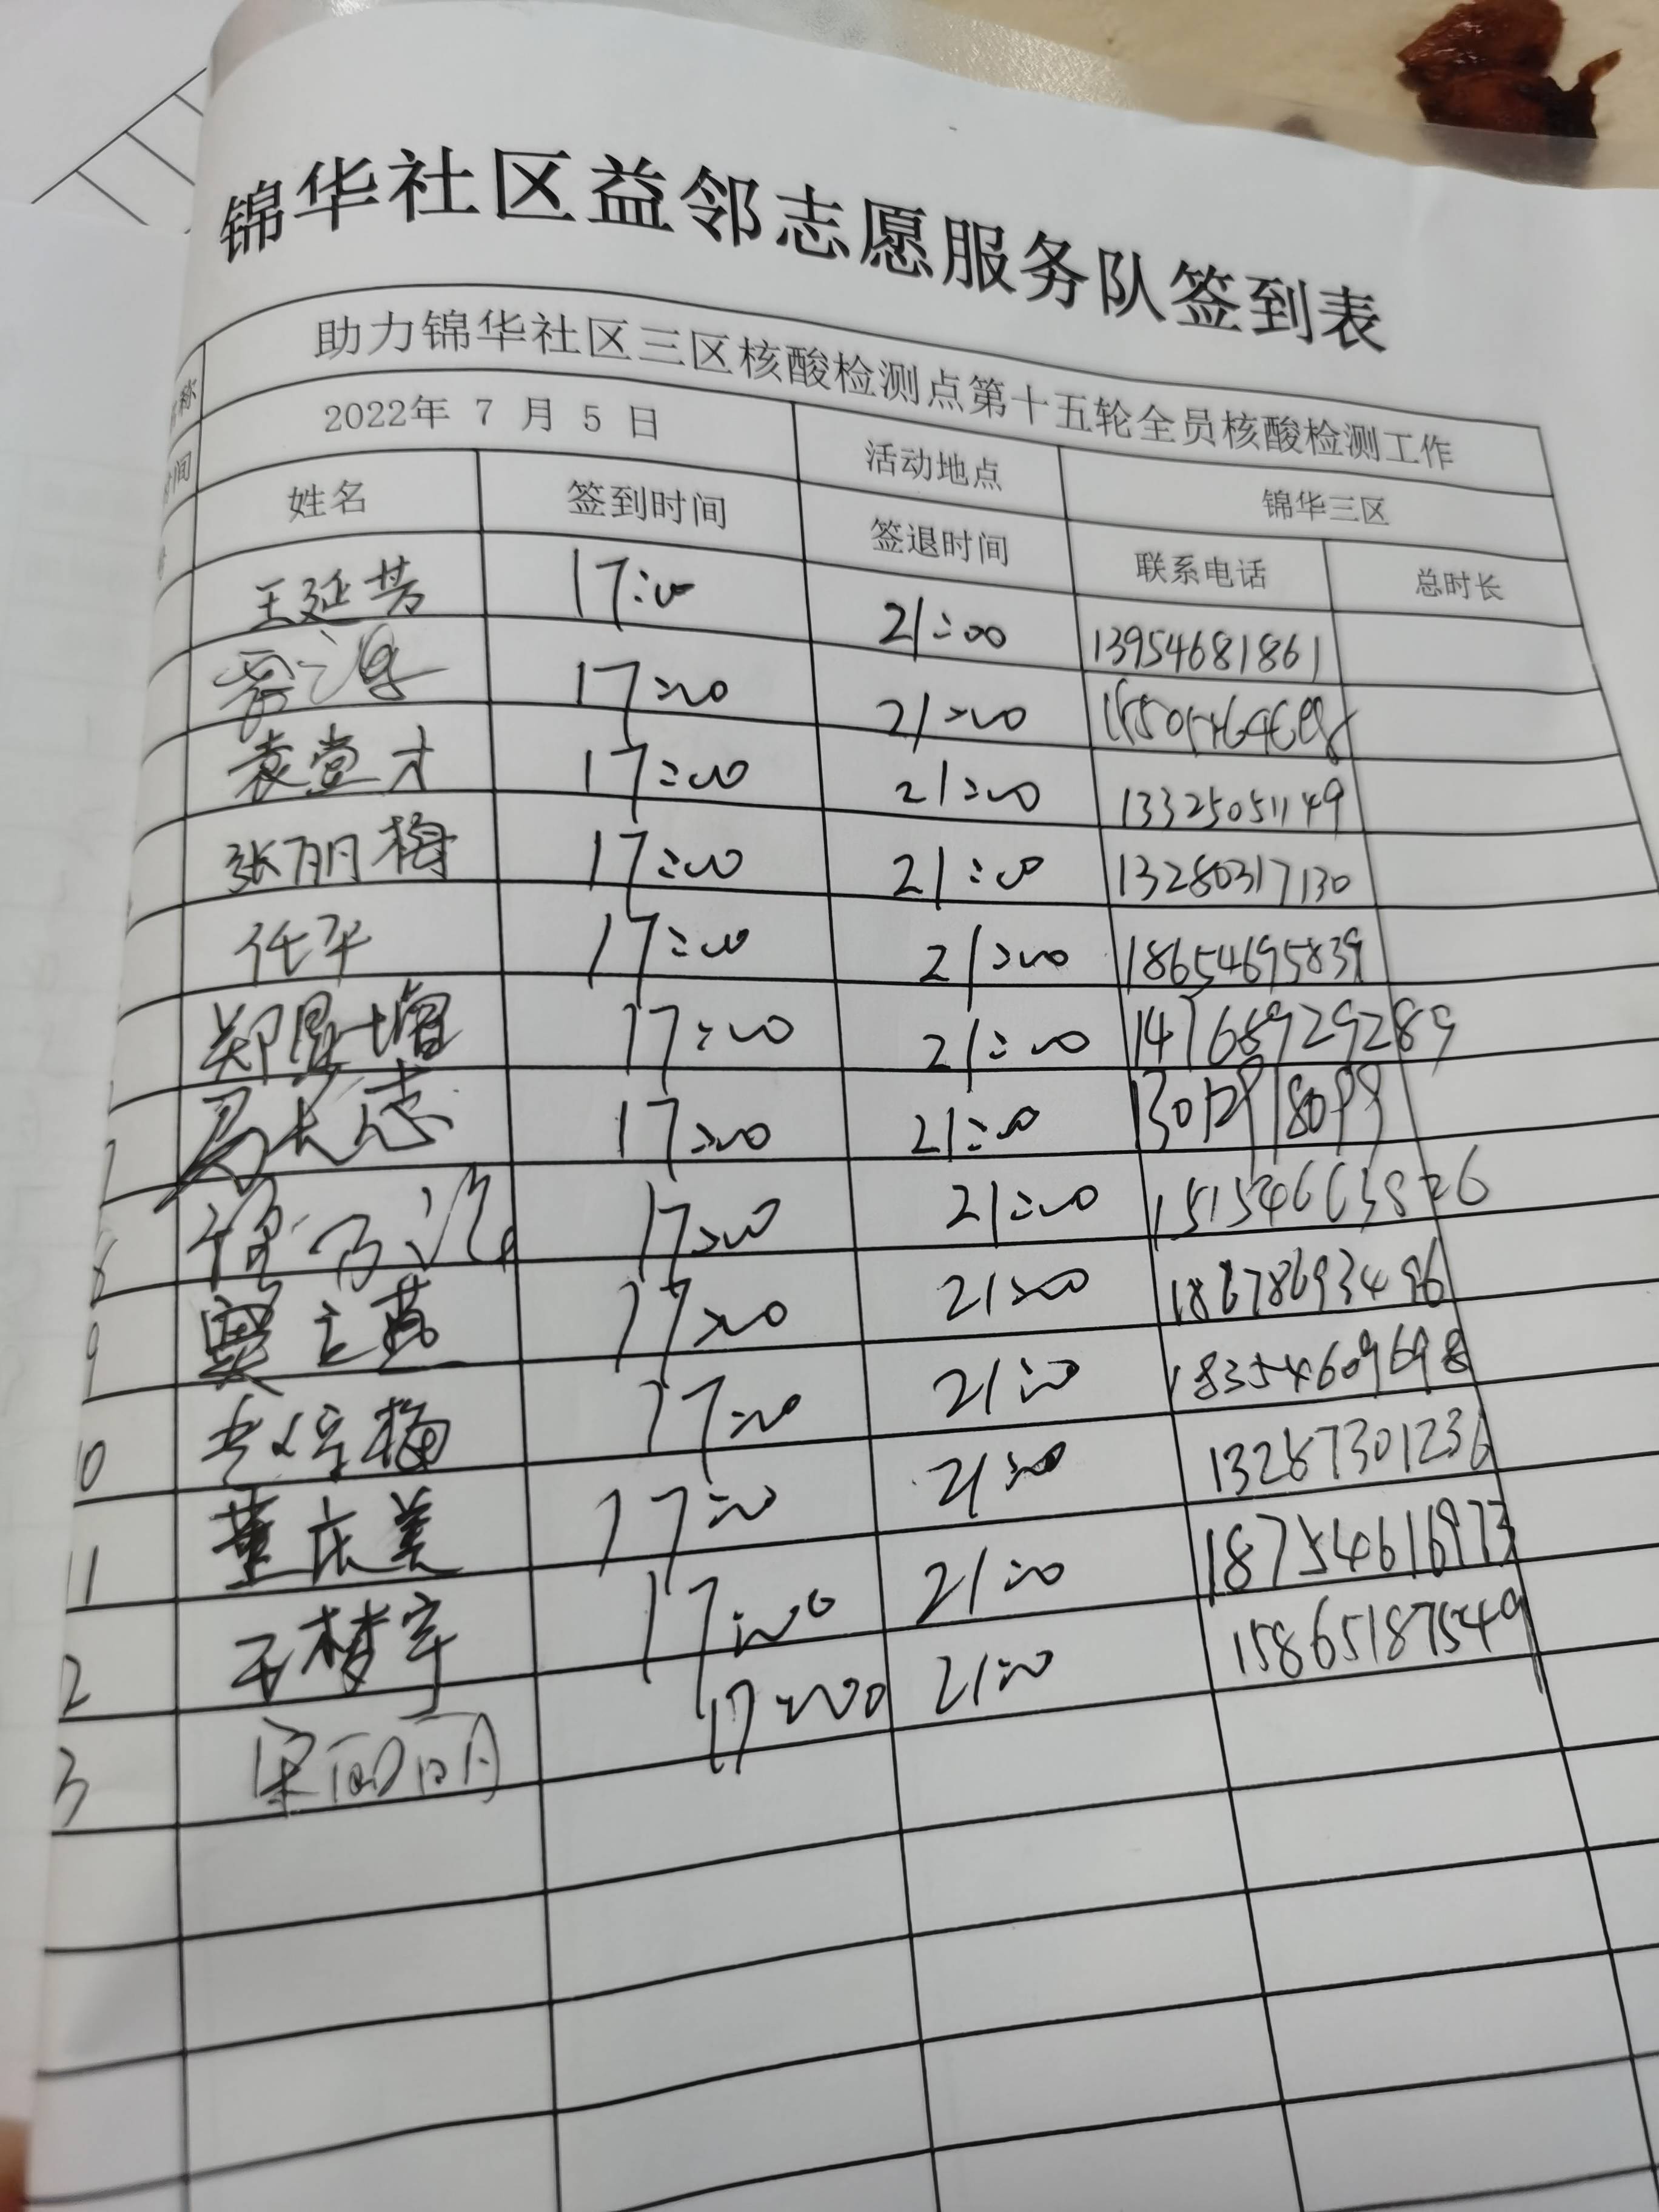 锦华社区益邻志愿服务队签到表
称 助力锦华社区三区核酸检测点第十五轮全员核酸检测工作
时间 2022年 7 月 5 日 活动地点 锦华三区
姓名 签到时间 签退时间 联系电话 总时长
王延芳 17:00 21:00 13954681861
17:00 21:00
袁堂才 17:00 21:00 13325051149
张丽梅 17:00 21:00 13280317130
任平 17:00 21:00 18654695839
郑墨增 17:00 21:00 14768929289
7 马长志 17:00 21:00
8 17:00 21:00
9 窦立燕 17:00 21:00 18678693496
10 李俊梅 17:00 21:00 18354609698
11 董庆美 17:00 21:00 13287301236
2 王梦宇 17:00 21:00 18754616973
3 宋丽丽 17:00 21:00 15865187549